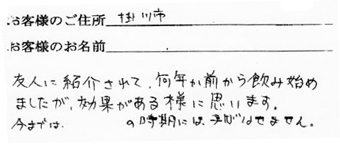 お客様のご住所 掛川市
お客様のお名前
友人に紹介されて、何年か前から飲み始め
ましたが、効果がある様に思います。
今までは、 の時期には手ばなせません。